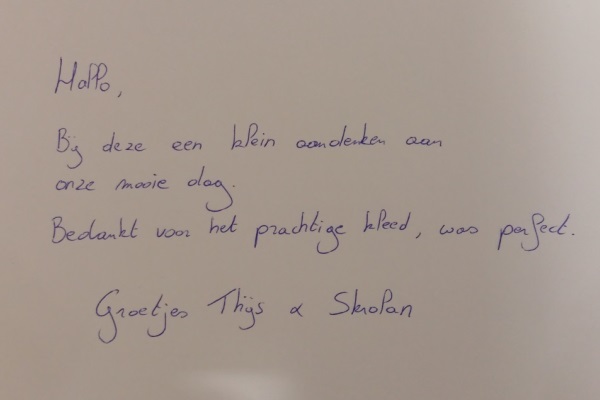 Hallo,
Bij deze een klein aandenken aan
onze mooie dag.
Bedankt voor het prachtige kleed, was perfect.
Groetjes Thijs &